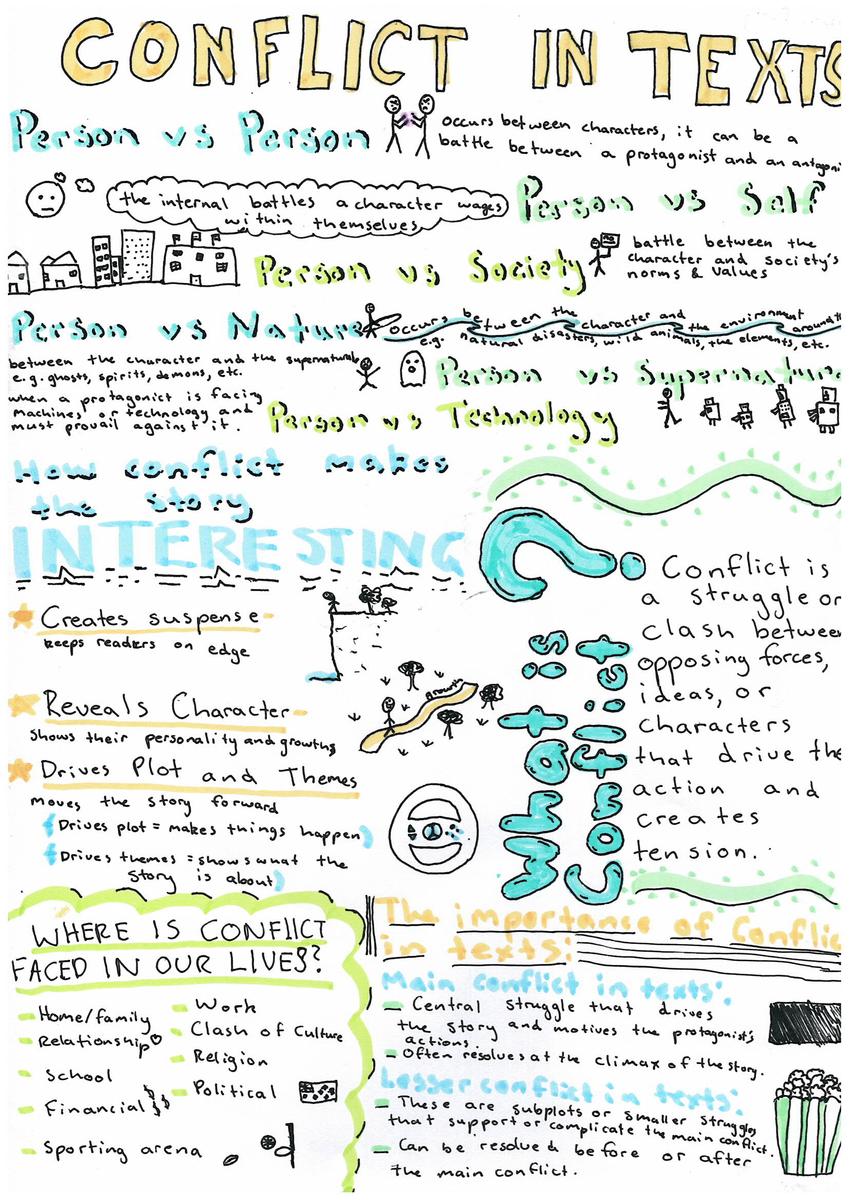 CONFLICT IN TEXTS
Person vs Person
occurs between characters, it can be a
battle between a protagonist and an antagoni
the internal battles a character wages
within themselves
Person vs Self
Person vs Society
battle between the
character and society's
norms & values
Person vs Nature
occurs between the character and the environment around th
e.g. natural disasters, wild animals, the elements, etc.
between the character and the supernatural
e.g. ghosts, spirits, demons, etc.
Person vs Supernature
when a protagonist is facing
machines or technology and
must provail against it.
Person vs Technology
How conflict makes
the story
INTERESTING
Creates suspense
keeps readers on edge
Reveals Character
shows their personality and growths
growth
Drives Plot and Themes
moves the story forward
(Drives plot = makes things happen)
(Drives themes = shows what the
story is about)
What is
Conflict
?
Conflict is
a struggle or
clash between
opposing forces,
ideas, or
characters
that drive the
action and
creates
tension.
WHERE IS CONFLICT
FACED IN OUR LIVES?
Home/family
Relationship
School
Financial $$
Sporting arena
Work
Clash of Culture
Religion
Political
The importance of Conflic
in texts:
Main conflict in texts:
Central struggle that drives
the story and motives the protagonist's
actions.
Often resolves at the climax of the story.
Lesser conflict in texts:
These are subplots or smaller struggles
that support or complicate the main conflict.
Can be resolved before or after
the main conflict.